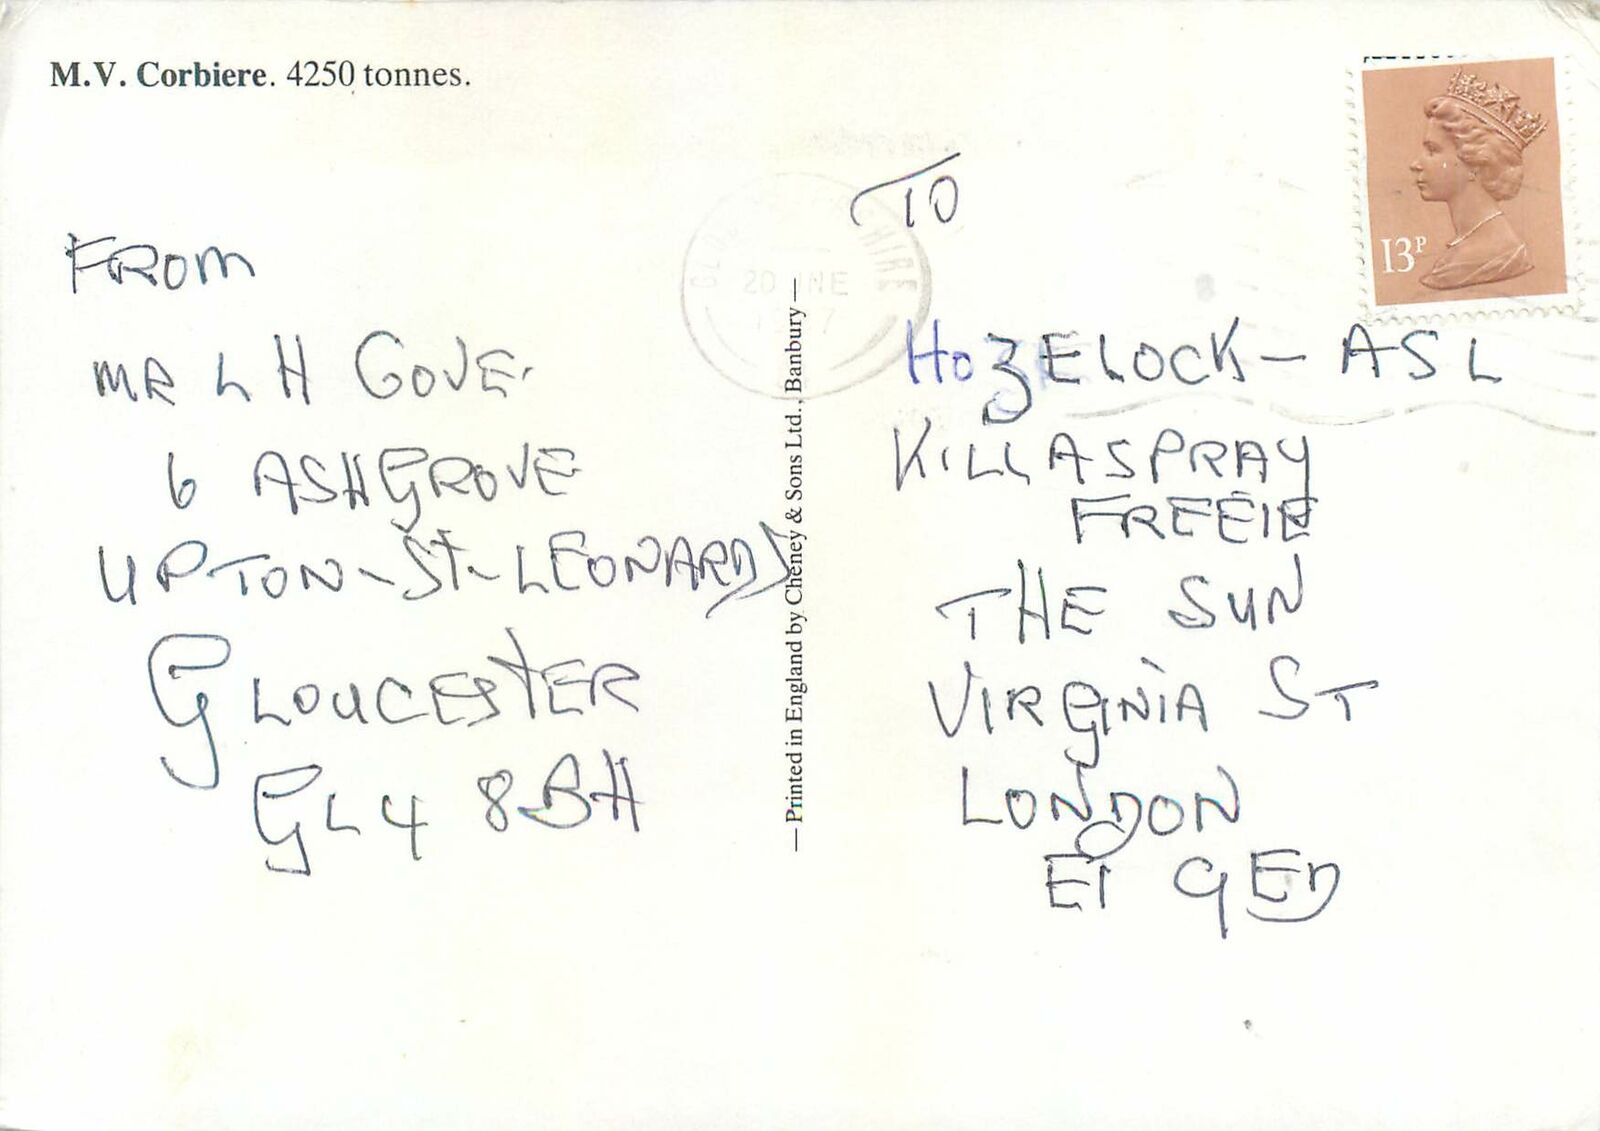 M.V. Corbiere. 4250 tonnes.
FROM
MR L H GOVE.
6 ASHGROVE
UPTON-St-LEONARDS
GLOUCESTER
GL4 8BH
— Printed in England by Cheney & Sons Ltd., Banbury —
20 JNE
13P
TO
HOZELOCK - ASL
KILLASPRAY
FREEIE
THE SUN
VIRGINIA ST
LONDON
E1 9ED